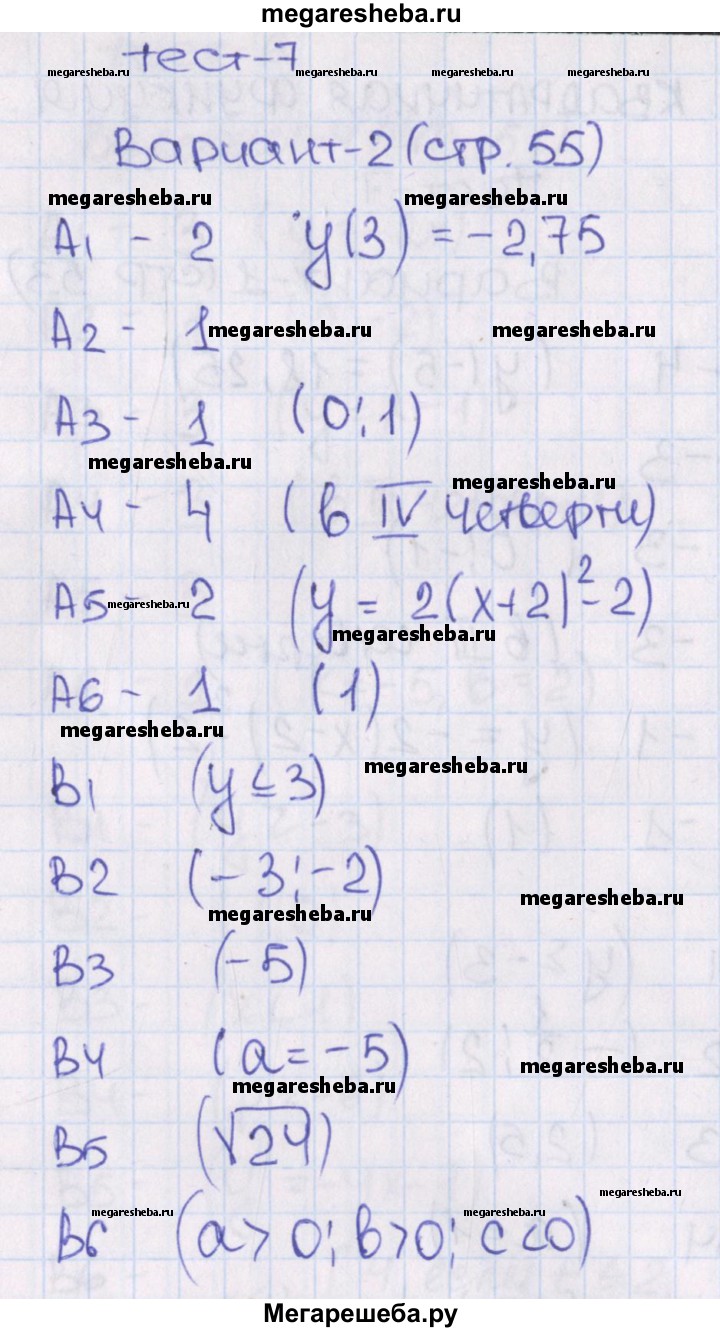 megaresheba.ru
тест-7
megaresheba.ru megaresheba.ru megaresheba.ru megaresheba.ru
Вариант-2 (стр. 55)
megaresheba.ru megaresheba.ru
A1 - 2 y(3) = -2,75
A2 - 1 megaresheba.ru megaresheba.ru
A3 - 1 (0;1)
megaresheba.ru megaresheba.ru
A4 - 4 (в IV четверти)
A5 - megaresheba.ru 2 (y = 2(x+2)²-2)
megaresheba.ru
A6 - 1 (1)
megaresheba.ru
megaresheba.ru
B1 (y ≤ 3)
B2 (-3;-2)
megaresheba.ru megaresheba.ru
B3 (-5)
B4 (a = -5) megaresheba.ru
megaresheba.ru
B5 (√24)
megaresheba.ru megaresheba.ru megaresheba.ru
B6 (a > 0; в>0; c<0)
Мегарешеба.ру